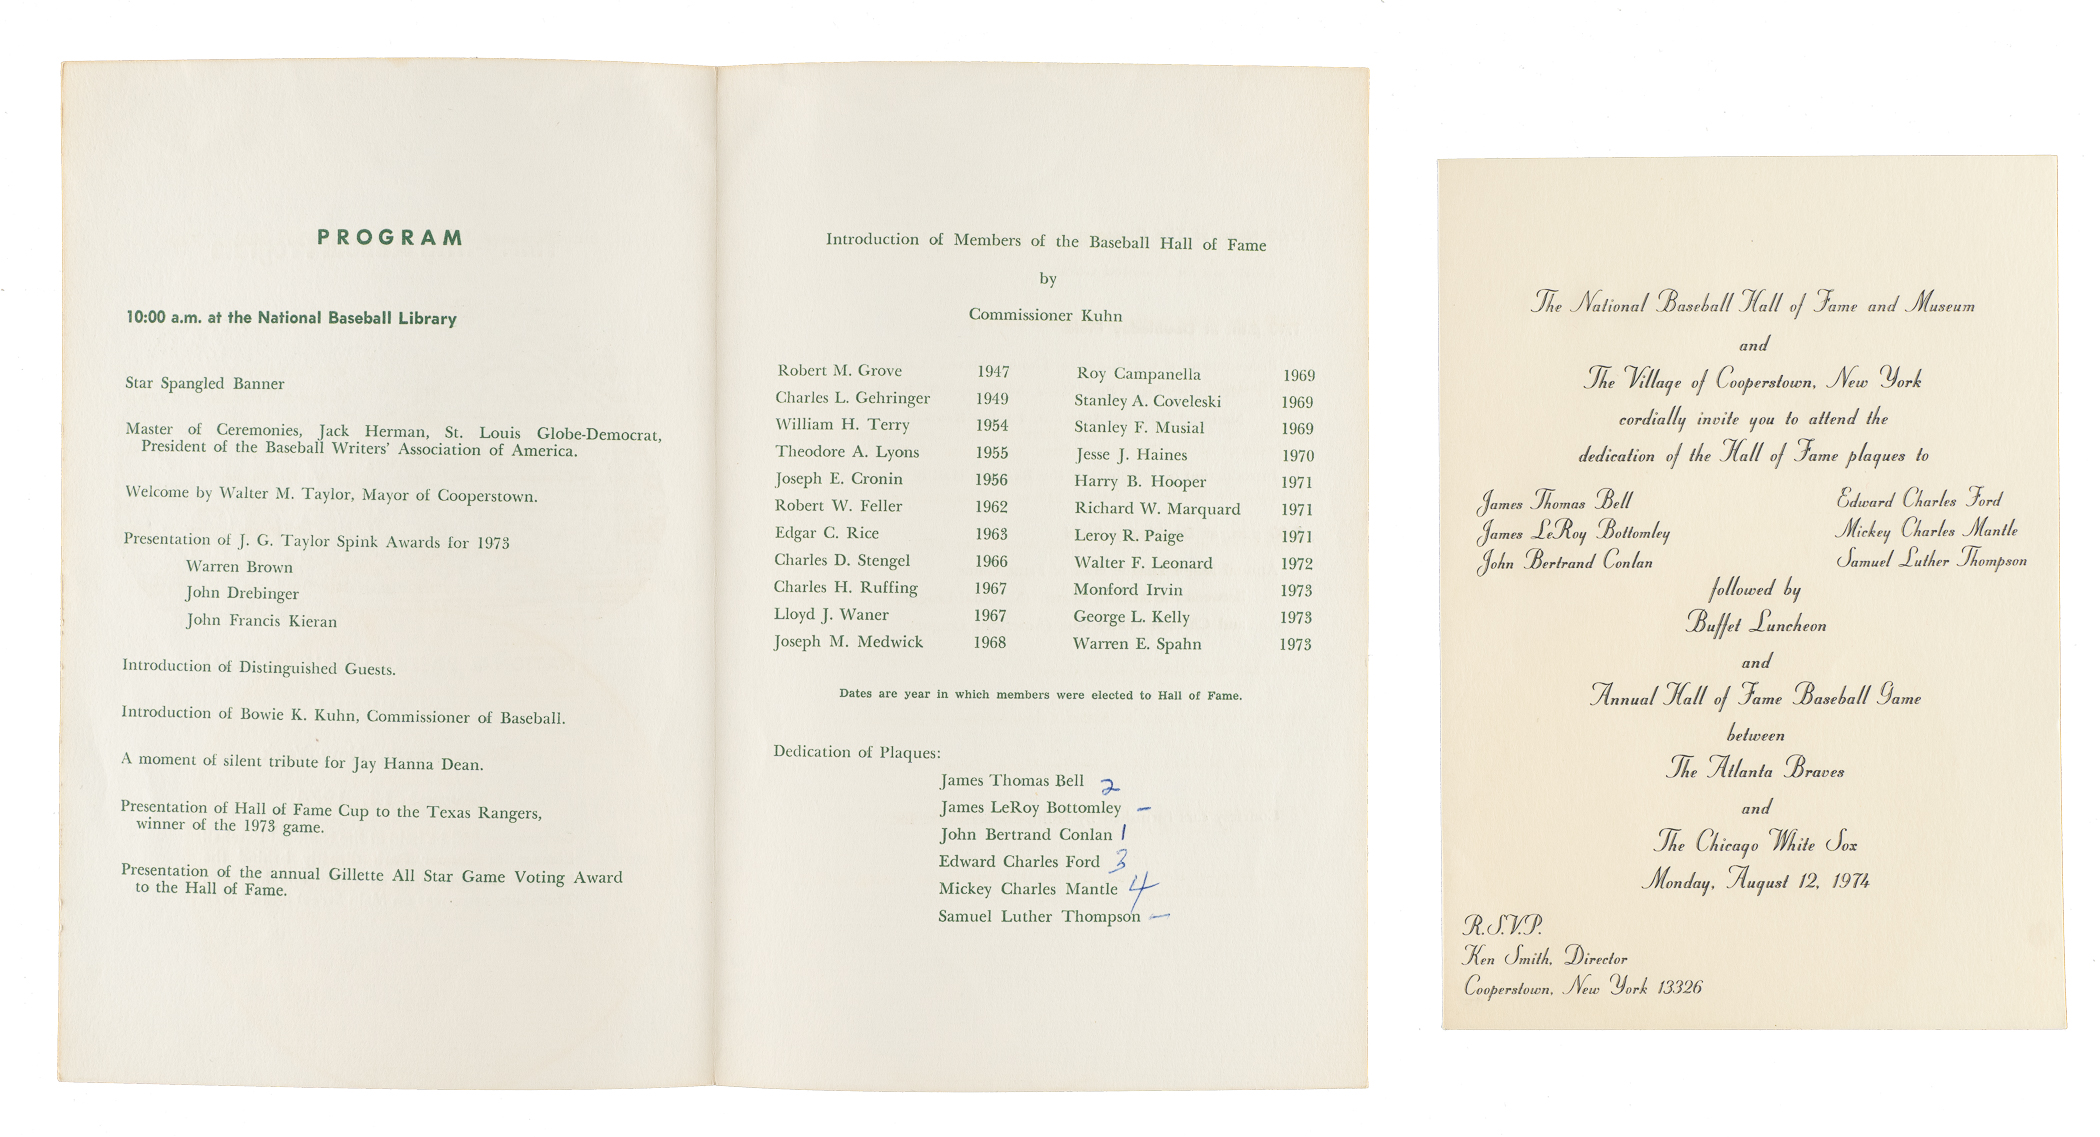 PROGRAM
10:00 a.m. at the National Baseball Library
Star Spangled Banner
Master of Ceremonies, Jack Herman, St. Louis Globe-Democrat,
President of the Baseball Writers' Association of America.
Welcome by Walter M. Taylor, Mayor of Cooperstown.
Presentation of J. G. Taylor Spink Awards for 1973
Warren Brown
John Drebinger
John Francis Kieran
Introduction of Distinguished Guests.
Introduction of Bowie K. Kuhn, Commissioner of Baseball.
A moment of silent tribute for Jay Hanna Dean.
Presentation of Hall of Fame Cup to the Texas Rangers,
winner of the 1973 game.
Presentation of the annual Gillette All Star Game Voting Award
to the Hall of Fame.
Introduction of Members of the Baseball Hall of Fame
by
Commissioner Kuhn
Robert M. Grove 1947 Roy Campanella 1969
Charles L. Gehringer 1949 Stanley A. Coveleski 1969
William H. Terry 1954 Stanley F. Musial 1969
Theodore A. Lyons 1955 Jesse J. Haines 1970
Joseph E. Cronin 1956 Harry B. Hooper 1971
Robert W. Feller 1962 Richard W. Marquard 1971
Edgar C. Rice 1963 Leroy R. Paige 1971
Charles D. Stengel 1966 Walter F. Leonard 1972
Charles H. Ruffing 1967 Monford Irvin 1973
Lloyd J. Waner 1967 George L. Kelly 1973
Joseph M. Medwick 1968 Warren E. Spahn 1973
Dates are year in which members were elected to Hall of Fame.
Dedication of Plaques:
James Thomas Bell 2
James LeRoy Bottomley –
John Bertrand Conlan 1
Edward Charles Ford 3
Mickey Charles Mantle 4
Samuel Luther Thompson –
The National Baseball Hall of Fame and Museum
and
The Village of Cooperstown, New York
cordially invite you to attend the
dedication of the Hall of Fame plaques to
James Thomas Bell Edward Charles Ford
James LeRoy Bottomley Mickey Charles Mantle
John Bertrand Conlan Samuel Luther Thompson
followed by
Buffet Luncheon
and
Annual Hall of Fame Baseball Game
between
The Atlanta Braves
and
The Chicago White Sox
Monday, August 12, 1974
R.S.V.P.
Ken Smith, Director
Cooperstown, New York 13326